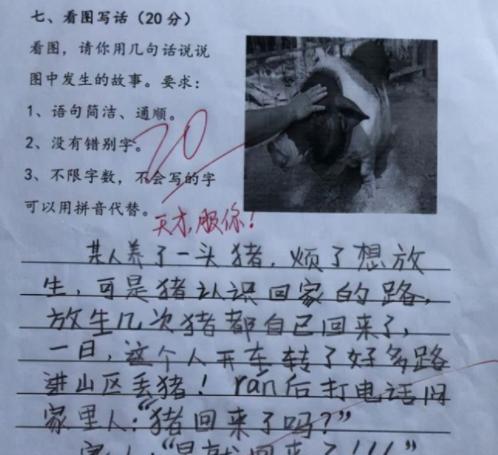 七、看图写话（20分）
看图，请你用几句话说说
图中发生的故事。要求：
1、语句简洁、通顺。
2、没有错别字。
3、不限字数，不会写的字
可以用拼音代替。
20
天才，服你！
某人养了一头猪，烦了想放
生，可是猪认识回家的路，
放生几次猪都自已回来了，
一日，这个人开车转了好多路
进山区丢猪！rán后打电话问
家里人："猪回来了吗？"
家人："早就回来了!!!"